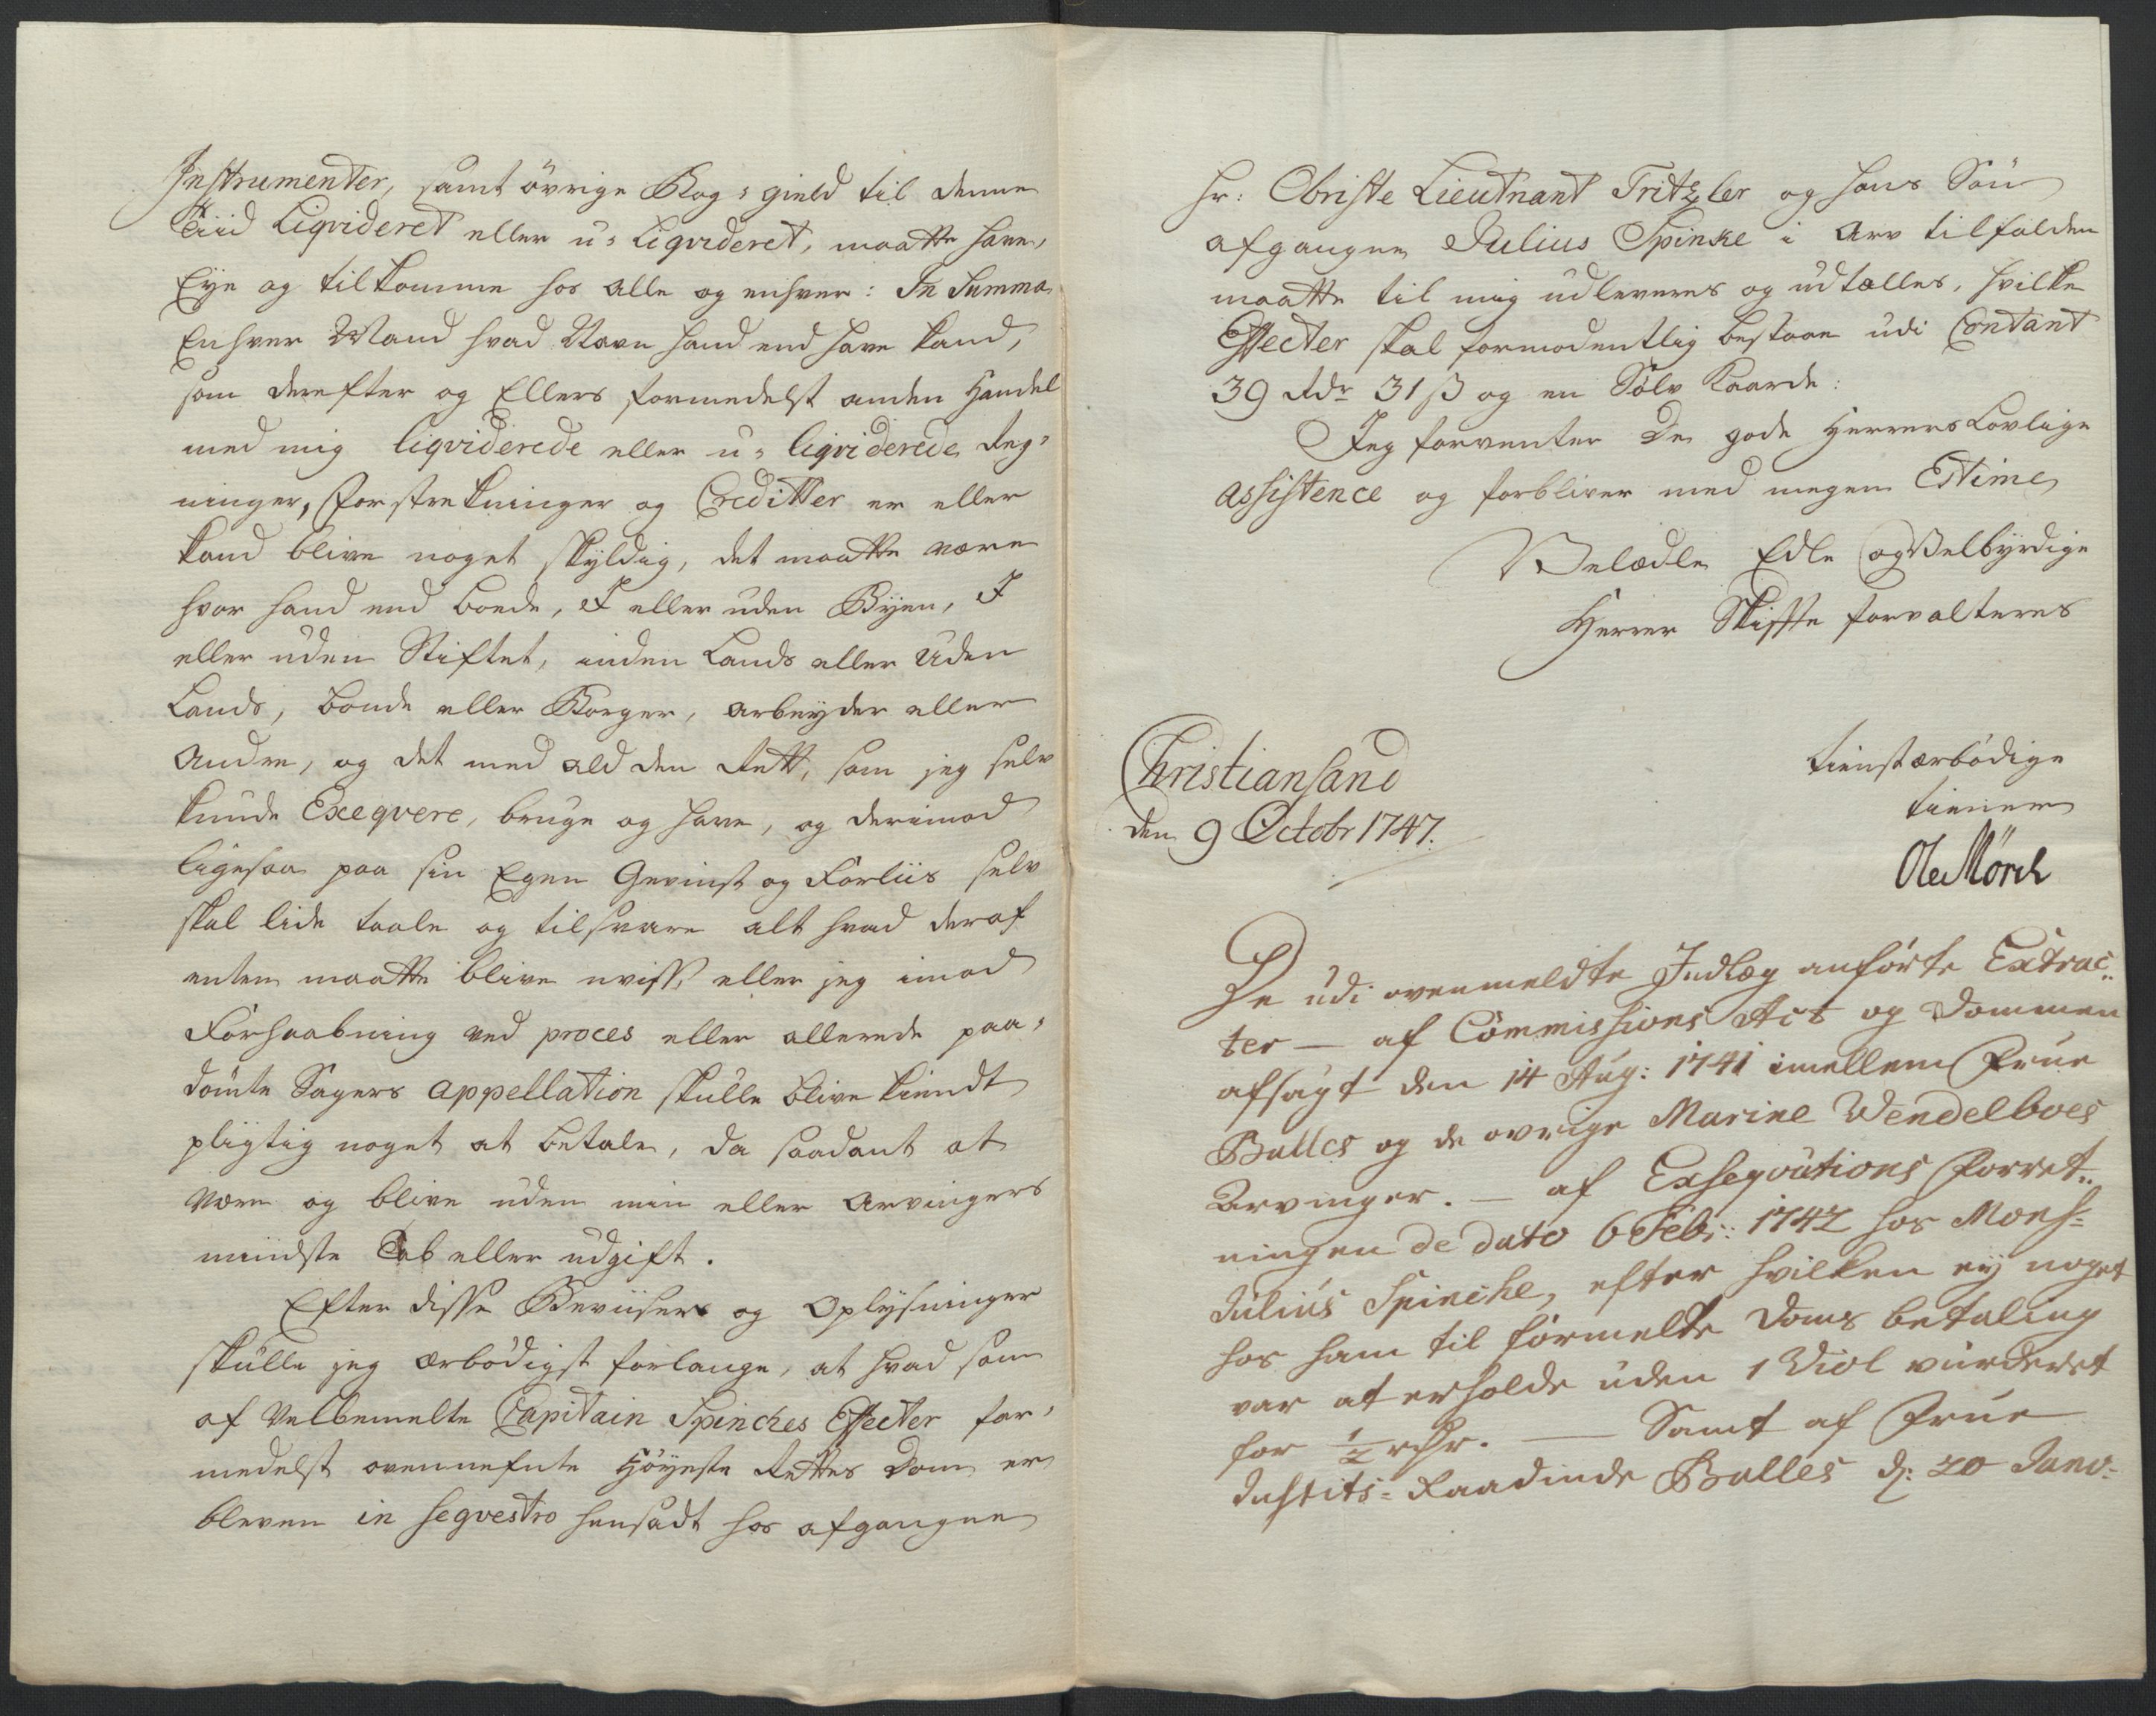 Instrumenter, samt øvrige Bog-gield til denne
Tiid Liqvideret eller u-Liqvideret, maatte have,
Eye og tilkomme hos alle og enhver: In Summa
Enhver Mand hvad Navn hand end have kand,
som derefter og Ellers formedelst anden Handel
med mig liqviderede eller u-liqviderede Reg-
ninger, Forstrekninger og Creditter er eller
kand blive noget skyldig, det maatte være
hvor hand end boede, I eller uden Byen, I
eller uden Stiftet, inden Lands eller Uden
Lands, bonde eller Borger, arbeyder eller
Andre, og det med ald den Rett, som jeg selv
kunde Exeqvere, bruge og have, og derimod
ligesaa paa sin Egen Gevinst og Forliis selv
skal lide taale og tilsvare alt hvad deraf
enten maatte blive uvisst, eller jeg imod
Forhaabning ved proces eller allerede paa-
dømte Sagers appellation skulle blive kiendt
pligtig noget at betale, da saadant at
være og blive uden min eller Arvingers
mindste Tab eller udgift.
Efter disse Beviiser og Oplysninger
skulle jeg ærbødigst forlange, at hvad som
af Velbemelte Capitain Spinches Effecter for-
medelst ovennefnte Høyeste Rettes Dom er
bleven in seqvestro hensadt hos afgangne
Hr: Obriste Lieutnant Tritzler og hans Søn
afgangne Julius Spinke i Arv tilfalden
maatte til mig udleveres og udtælles, hvilke
Effecter skal formodentlig bestaae udi Contant
39 Rdr 31 ß og en Sølv Kaarde:
Jeg forventer De gode Herrers Lovlige
assistence og forbliver med megen Estime
Velædle Edle og Velbyrdige
Herrer Skifte forvalteres
Christiansand
den 9 Octobr 1747.
tienstærbødige
tiener
Ole Mørch
De udi ovenmeldte Indlæg anførte Extrac-
ter — af Commissions Act og Dommen
afsagt den 14 Aug: 1741 imellem Frue
Balles og de øvrige Marine Wendelboes
Arvinger. — af Exseqvutions Forret-
ningen de dato 6 Febr: 1742 hos Mons-
Julius Spinche, efter hvilken ey noget
hos ham til formelte Doms betaling
var at erholde uden 1 Viol vurderet
for ½ rdr. — Samt af Frue
Justits-Raadinde Balles d: 20 Janv-